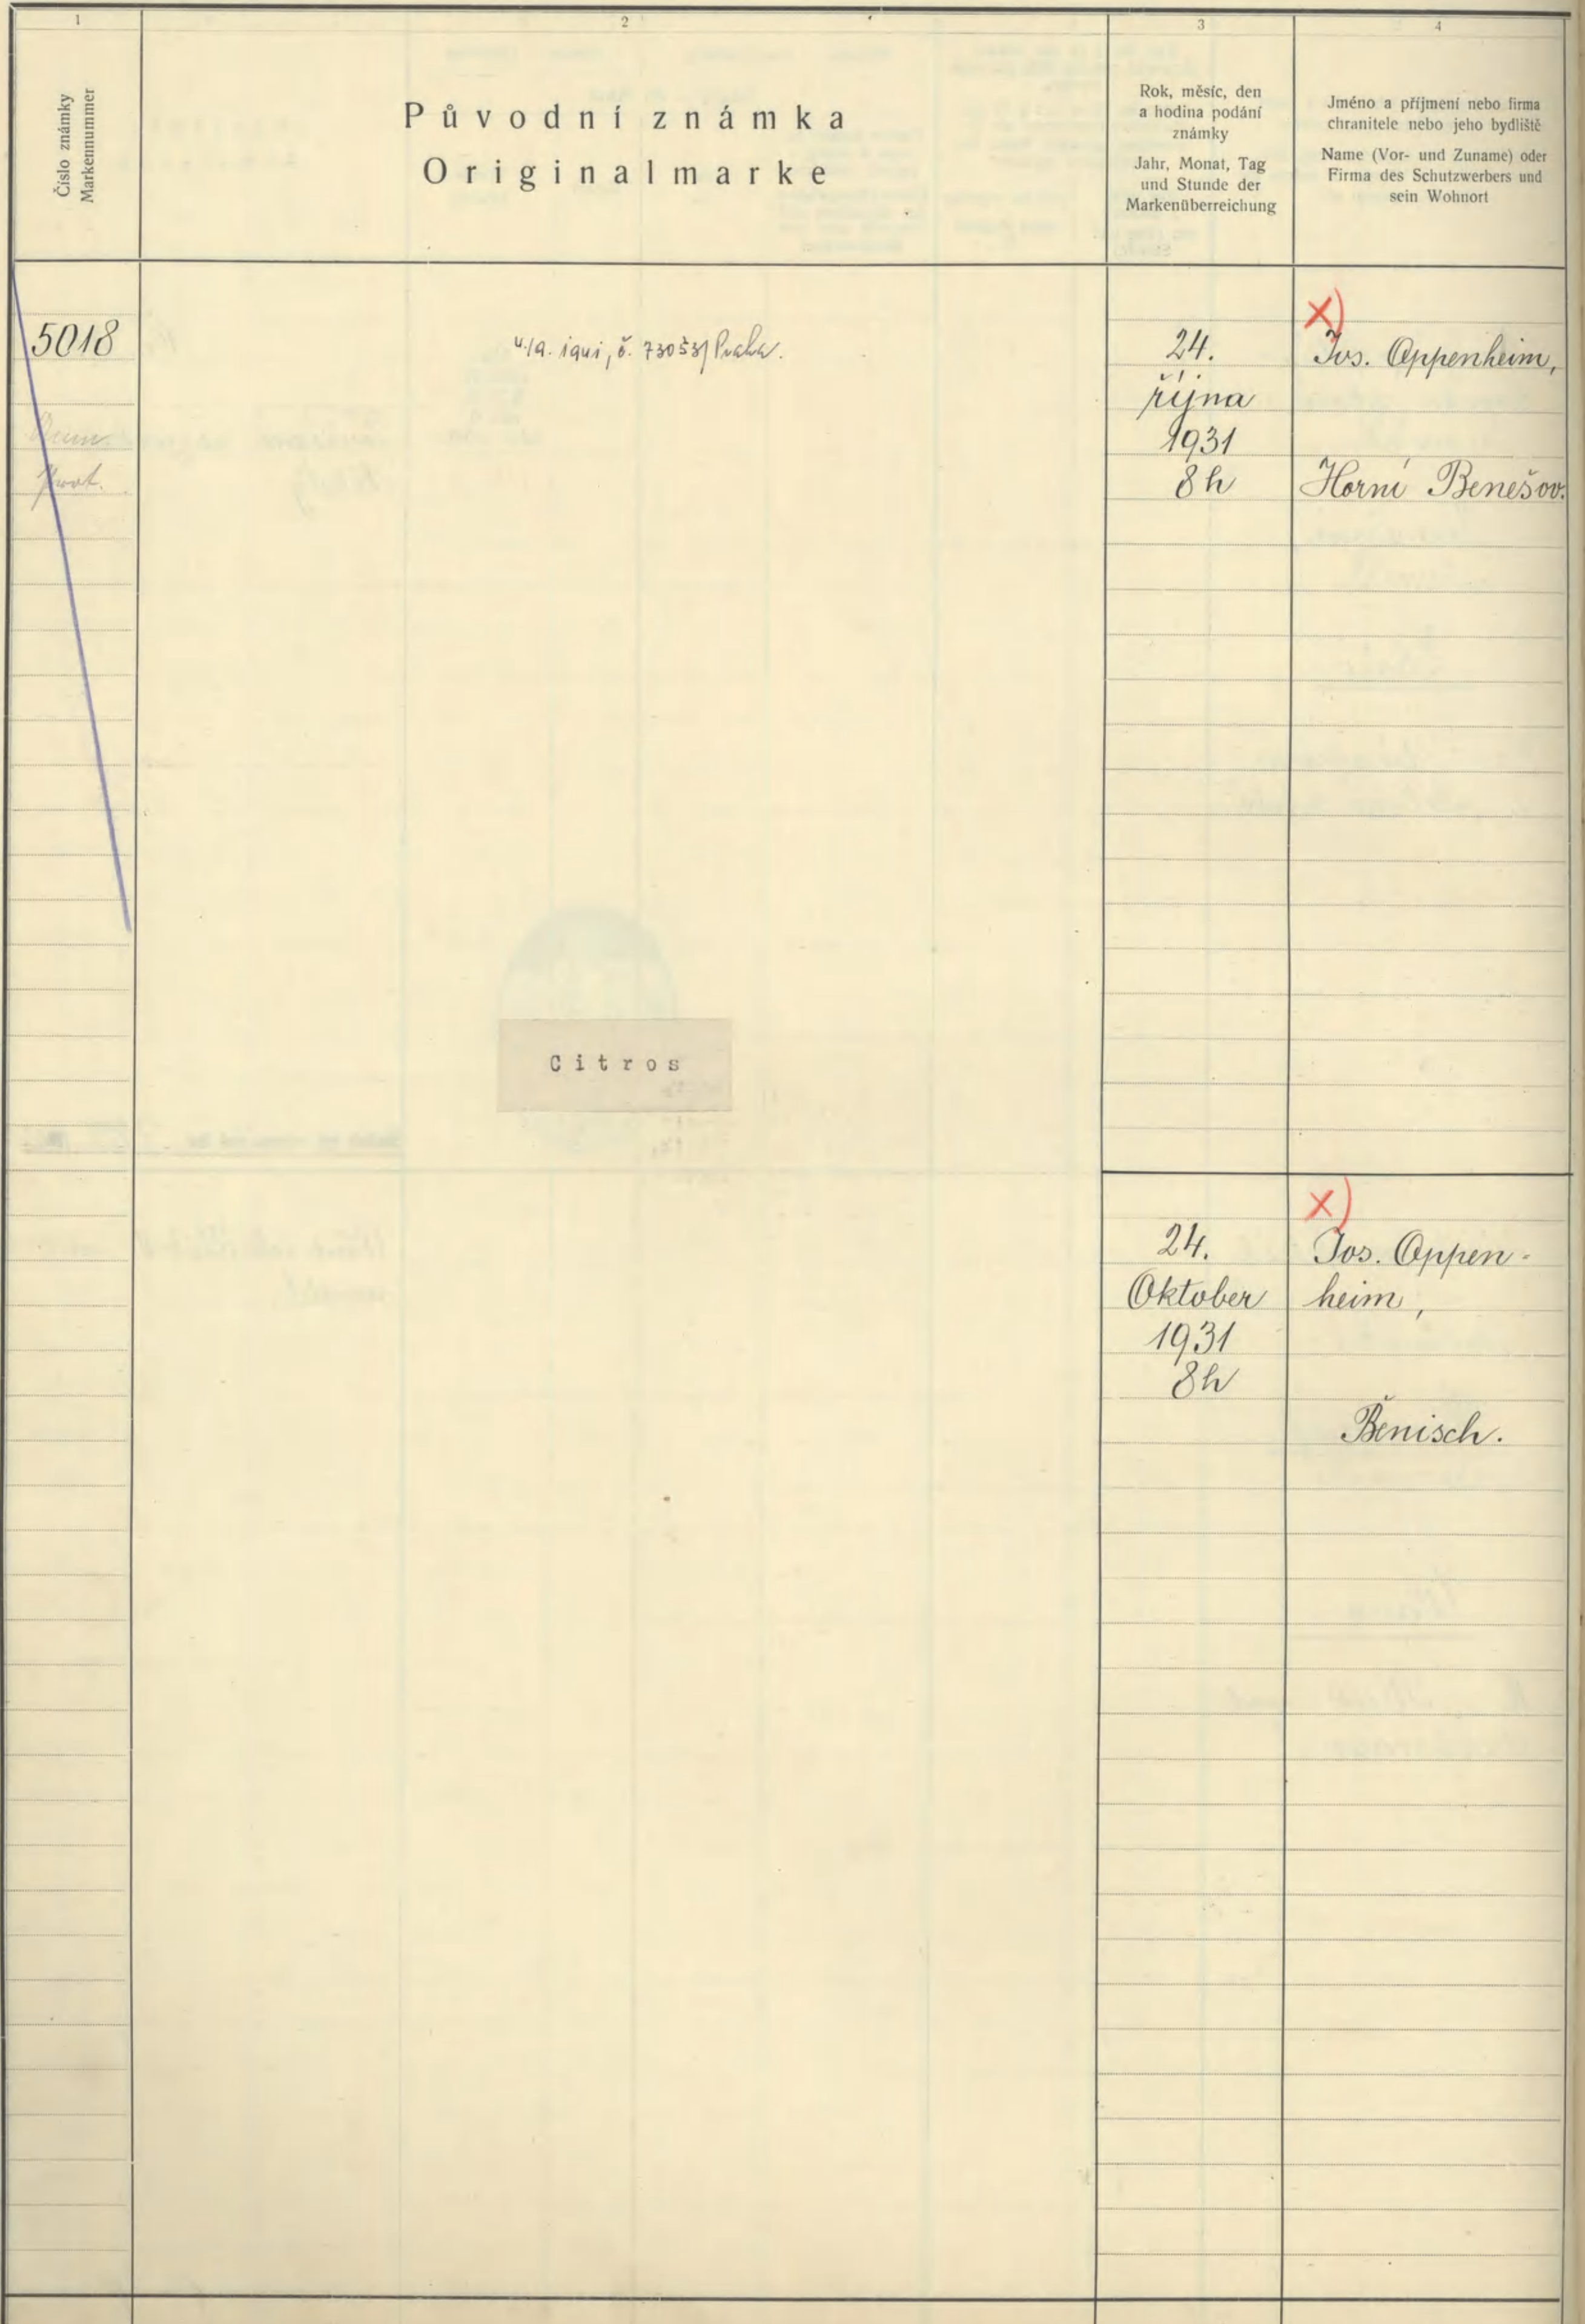 1
2
3
4
Číslo známky
Markennummer
Původní známka
Originalmarke
Rok, měsíc, den
a hodina podání
známky
Jahr, Monat, Tag
und Stunde der
Markenüberreichung
Jméno a příjmení nebo firma
chranitele nebo jeho bydliště
Name (Vor- und Zuname) oder
Firma des Schutzwerbers und
sein Wohnort
5018
Praha.
24.
října
1931
8h
x)
Jos. Oppenheim,
Horní Benešov.
Citros
24.
Oktober
1931
8h
x)
Jos. Oppen-
heim,
Benisch.